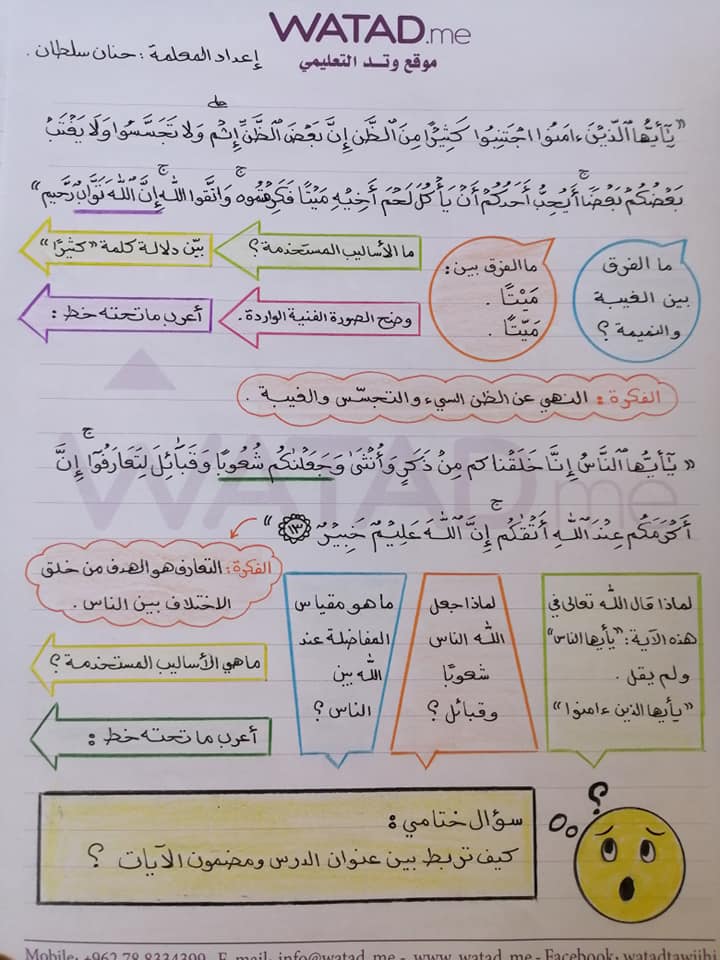 WATAD.me
موقع وتد التعليمي
إعداد المعلمة : حنان سلطان .
« يَٰٓأَيُّهَا الَّذِينَ ءامَنُوا اجْتَنِبُوا كَثِيرًا مِنَ الظَّنِ إِنَّ بَعْضَ الظَّنِّ إِثْم وَلا تَجَسَّسُوا وَلَا يَغْتَبْ
بَعْضُكُمْ بَعْضًا أَيُحِبُّ أَحَدُكُمْ أَنْ يَأْكُلَ لَحْمَ أَخِيهِ مَيْتًا فَكَرِهْتُمُوهُ وَاتَّقُوا اللَّهَ إِنَّ اللَّهَ تَوَّابٌ رَّحِيم »
ما الفرق
بين الغيبة
والنميمة ؟
ما الفرق بين :
مَيْتًا .
مَيّتًا .
ما الأساليب المستخدمة ؟
بيّن دلالة كلمة "كثيرًا"
وضح الصورة الفنية الواردة .
أعرب ما تحته خط :
الفكرة : النهي عن الظن السيء والتجسّس والغيبة .
« يَٰٓأَيُّهَا النَّاسُ إِنَّا خَلَقْنَاكم مِنْ ذَكَرٍ وَأُنْثَىٰ وَجَعَلْنَٰكُم شُعُوبًا وَقَبَائِلَ لِتَعَارَفُوٓا إِنَّ
أَكْرَمَكُم عِنْدَ اللَّهِ أَتْقَٰكُم إِنَّ اللَّهَ عَلِيمٌ خَبِيرٌ ١٣ »
الفكرة : التعارف هو الهدف من خلق
الاختلاف بين الناس .
لماذا قال الله تعالى في
هذه الآية : "يأيها الناس"
ولم يقل .
"يأيها الذين ءامنوا"
لماذا جعل
الله الناس
شعوبًا
وقبائل ؟
ما هو مقياس
المفاضلة عند
الله بين
الناس ؟
ما هي الأساليب المستخدمة ؟
أعرب ما تحته خط :
سؤال ختامي :
كيف تربط بين عنوان الدرس ومضمون الآيات ؟
Mobile: +962 78 8334399 E-mail: info@watad.me - www.watad.me - Facebook: watadtawjihi